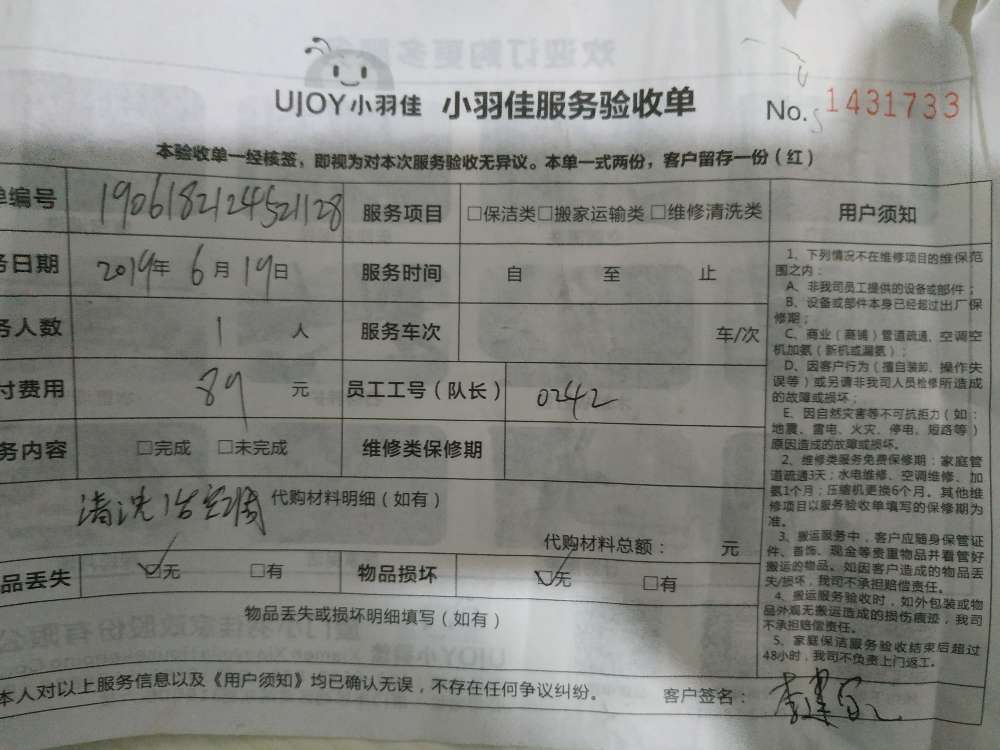 UJOY小羽佳 小羽佳服务验收单 No. 1431733
本验收单一经核签，即视为对本次服务验收无异议。本单一式两份，客户留存一份（红）
单编号 1906182124521128 服务项目 □保洁类□搬家运输类 □维修清洗类 用户须知
务日期 2019年 6月19日 服务时间 自 至 止
务人数 1 人 服务车次 车/次
付费用 89 元 员工工号（队长） 0242
务内容 □完成 □未完成 维修类保修期
清洗 空调 代购材料明细（如有）
代购材料总额： 元
品丢失 ☑无 □有 物品损坏 ☑无 □有
物品丢失或损坏明细填写（如有）
本人对以上服务信息以及《用户须知》均已确认无误，不存在任何争议纠纷。 客户签名：
1、下列情况不在维修项目的维保范
围之内：
A、非我司员工提供的设备或部件；
B、设备或部件本身已经超过出厂保
修期；
C、商业（商铺）管道疏通、空调空
机加氨（新机或漏氨）；
D、因客户行为（擅自装卸、操作失
误等）或另请非我司人员检修所造成
的故障或损坏；
E、因自然灾害等不可抗拒力（如：
地震、雷电、火灾、停电、短路等）
原因造成的故障或损坏。
2、维修类服务免费保修期：家庭管
道疏通3天；水电维修、空调维修、加
氨1个月；压缩机更换6个月。其他维
修项目以服务验收单填写的保修期为
准。
3、搬运服务中，客户应随身保管证
件、首饰、现金等贵重物品并看管好
搬运的物品。如因客户造成的物品丢
失/损坏，我司不承担赔偿责任。
4、搬运服务验收时，如外包装或物
品外观无搬运造成的损伤痕迹，我司
不承担赔偿责任。
5、家庭保洁服务验收结束后超过
48小时，我司不负责上门返工。